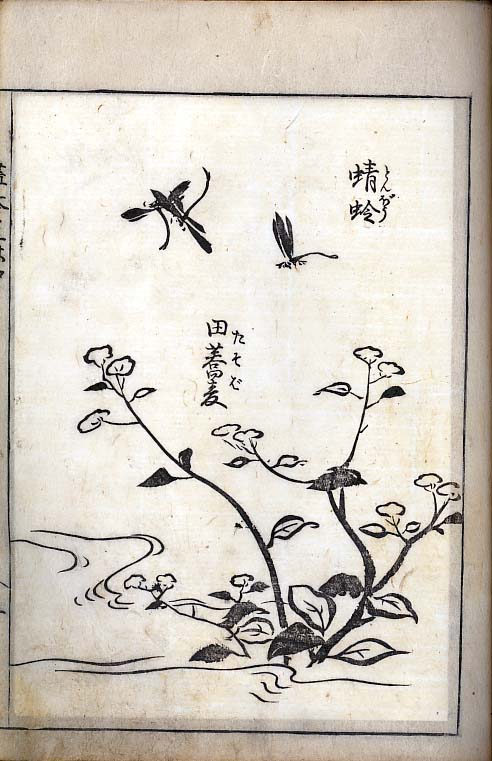 蜻蛉
とんぼう
田蕎麦
たそば